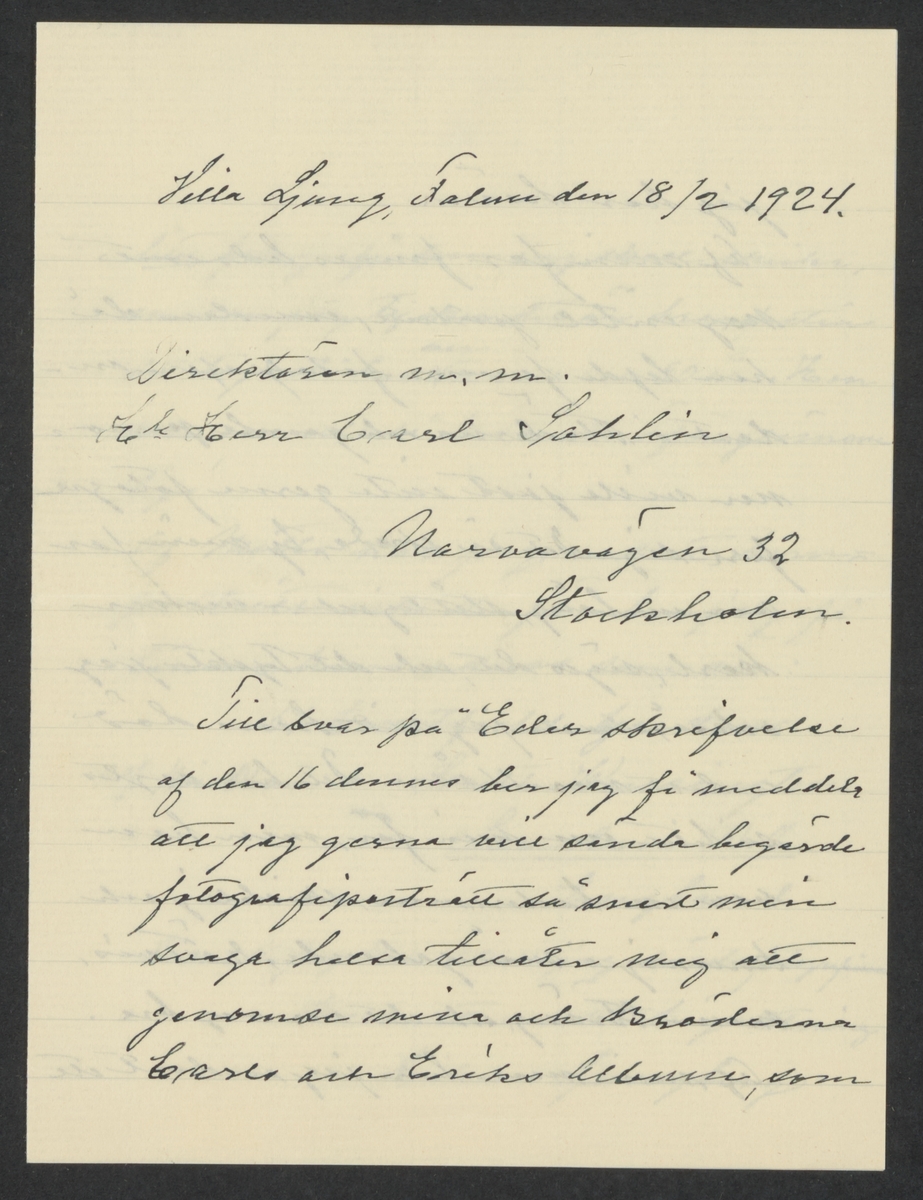 Villa Ljung, Falun den 18/2 1924.
Direktören m. m.
Herr Carl Sahlin
Narvavägen 32
Stockholm.
Till svar på Eder skrifvelse
af den 16 dennes ber jag få meddela
att jag gerna vill sända begärde
fotografiporträtt så snart min
svaga helsa tillåter mig att
genomse mina och Bröderna
Carls och Eriks Album, som